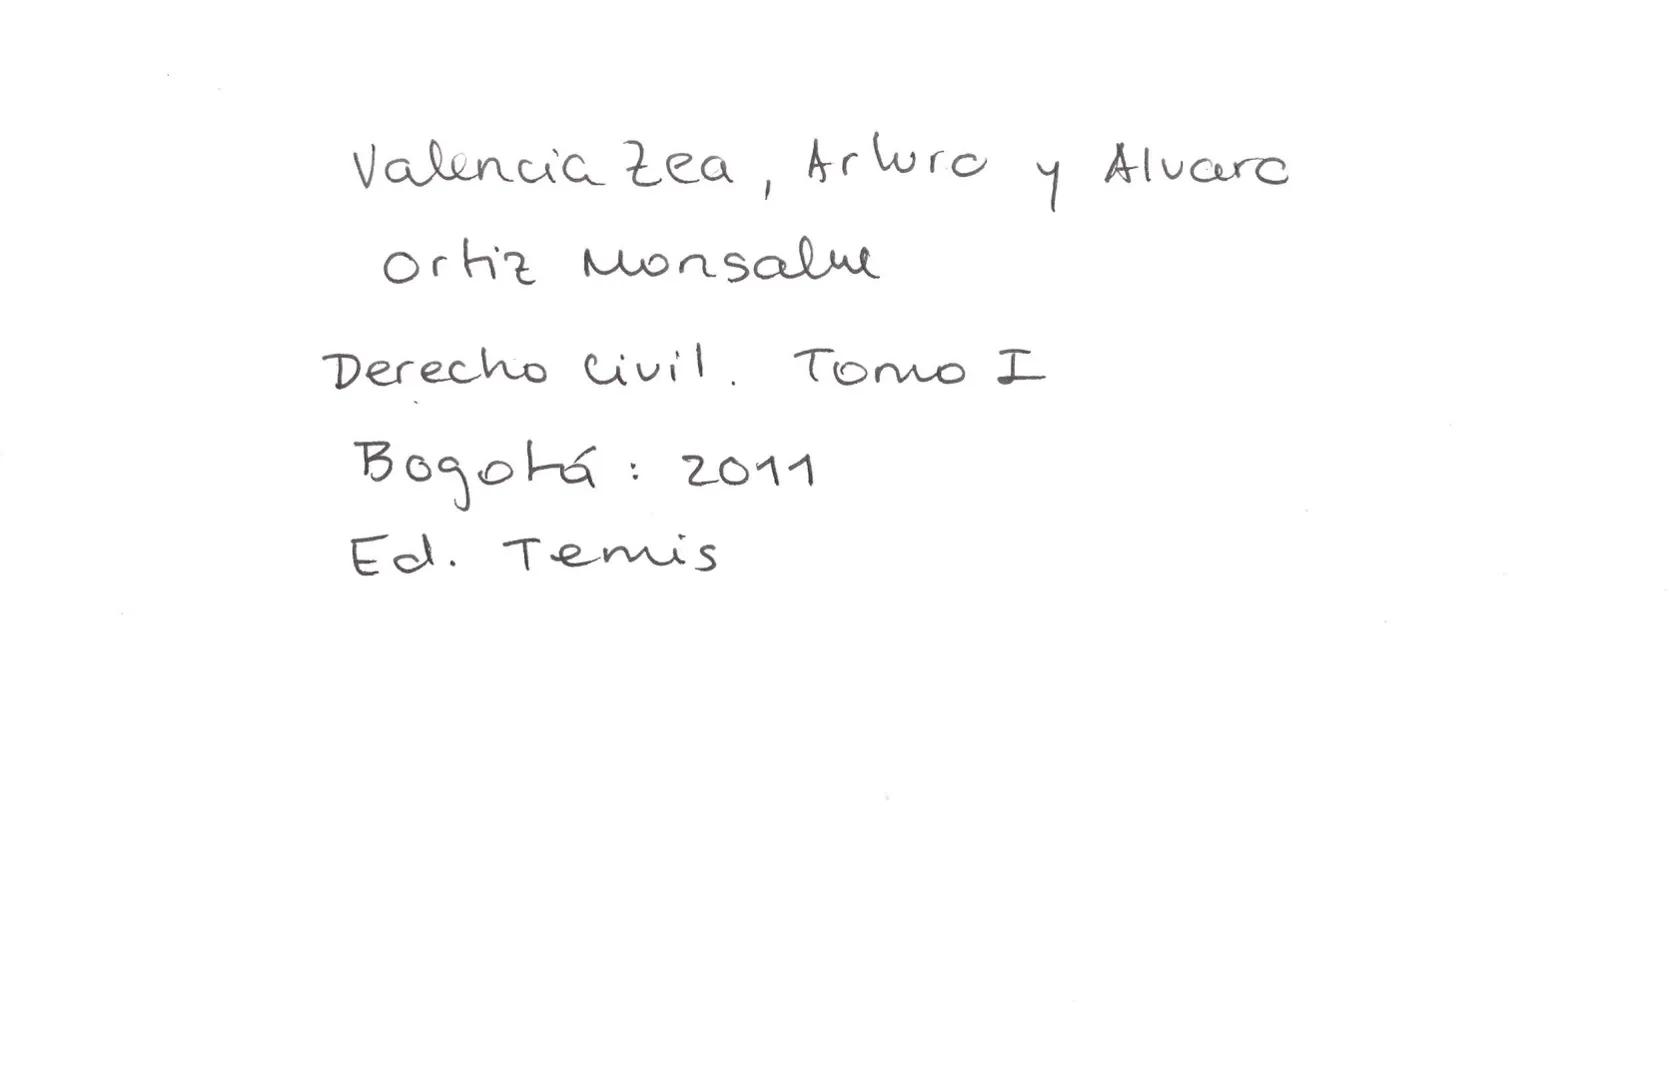 Valencia Zea, Arturo y Alvaro
Ortiz Monsalve
Derecho Civil. Tomo I
Bogotá: 2011
Ed. Temis